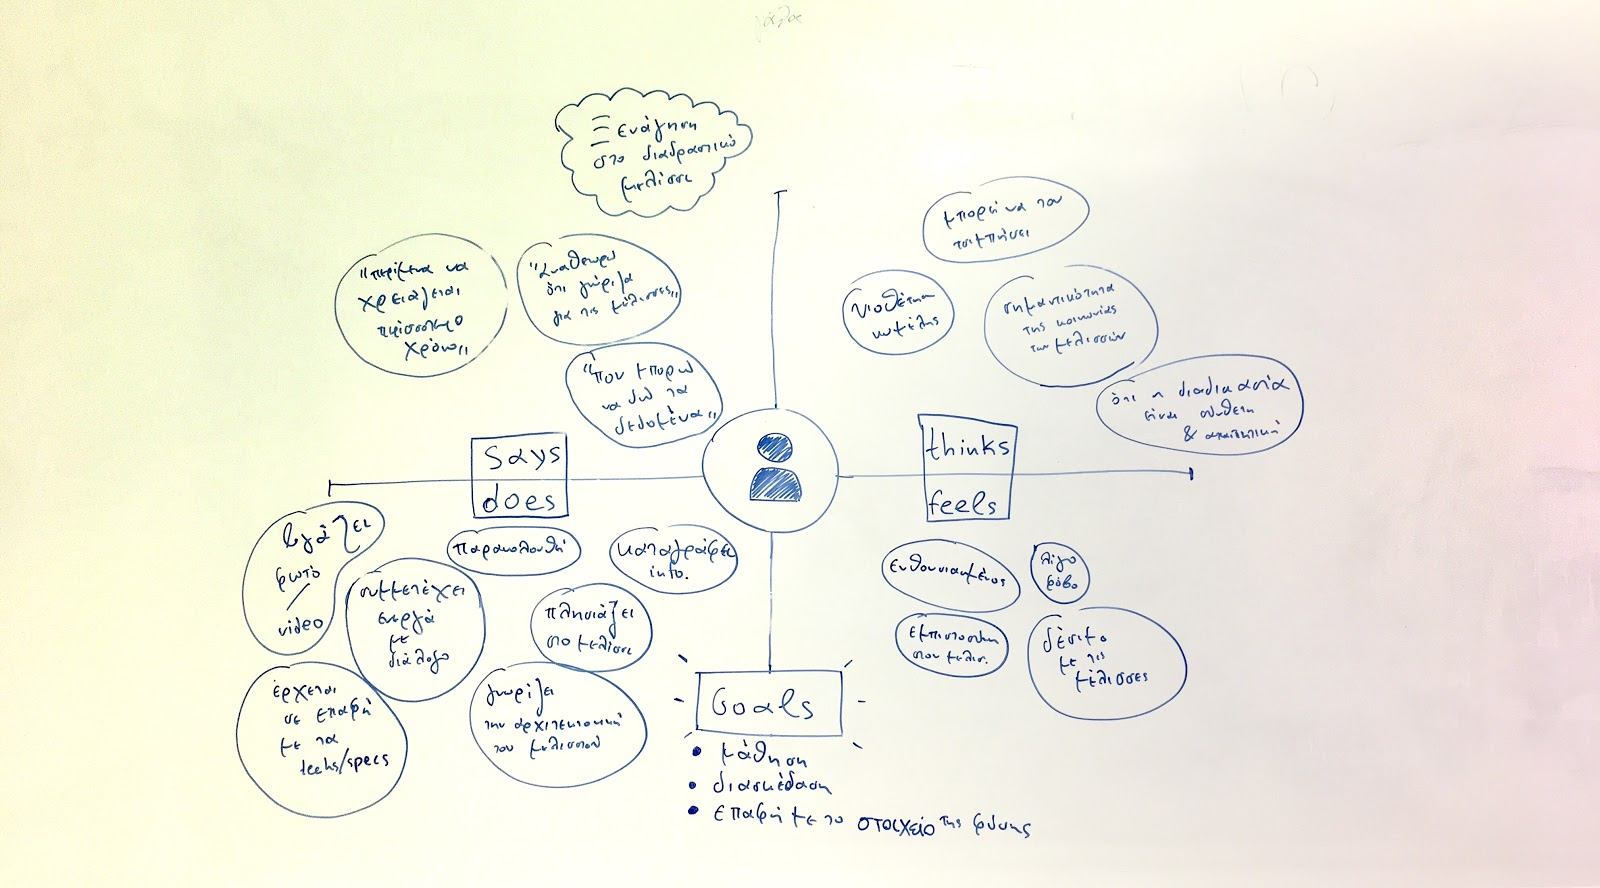 Ξενάγηση
στο διαδραστικό
μελίσσι
"περίμενα να
χρειάζεται
περισσότερο
χρόνο,,
"Αναθεωρώ
ότι γνώριζα
για τις μέλισσες,,
"που μπορώ
να δω τα
δεδομένα,,
μπορεί να τον
τσιμπήσει
υιοθέτηση
κυψέλης
σημαντικότητα
της κοινωνίας
των μελισσών
ότι η διαδικασία
είναι σύνθετη
& απαιτητική
says
does
thinks
feels
βγάζει
φωτό
/
video
συμμετέχει
ενεργά
με
διάλογο
παρακολουθεί
καταγράφει
info.
πλησιάζει
στο μελίσσι
έρχεται
σε επαφή
με τα
techs/specs
γνωρίζει
την αρχιτεκτονική
του μελισσιού
ενθουσιασμένος
λίγο
φόβο
εμπιστοσύνη
στον μελισ.
δέσιμο
με τις
μέλισσες
Goals
• μάθηση
• διασκέδαση
• επαφή με το στοιχείο της φύσης